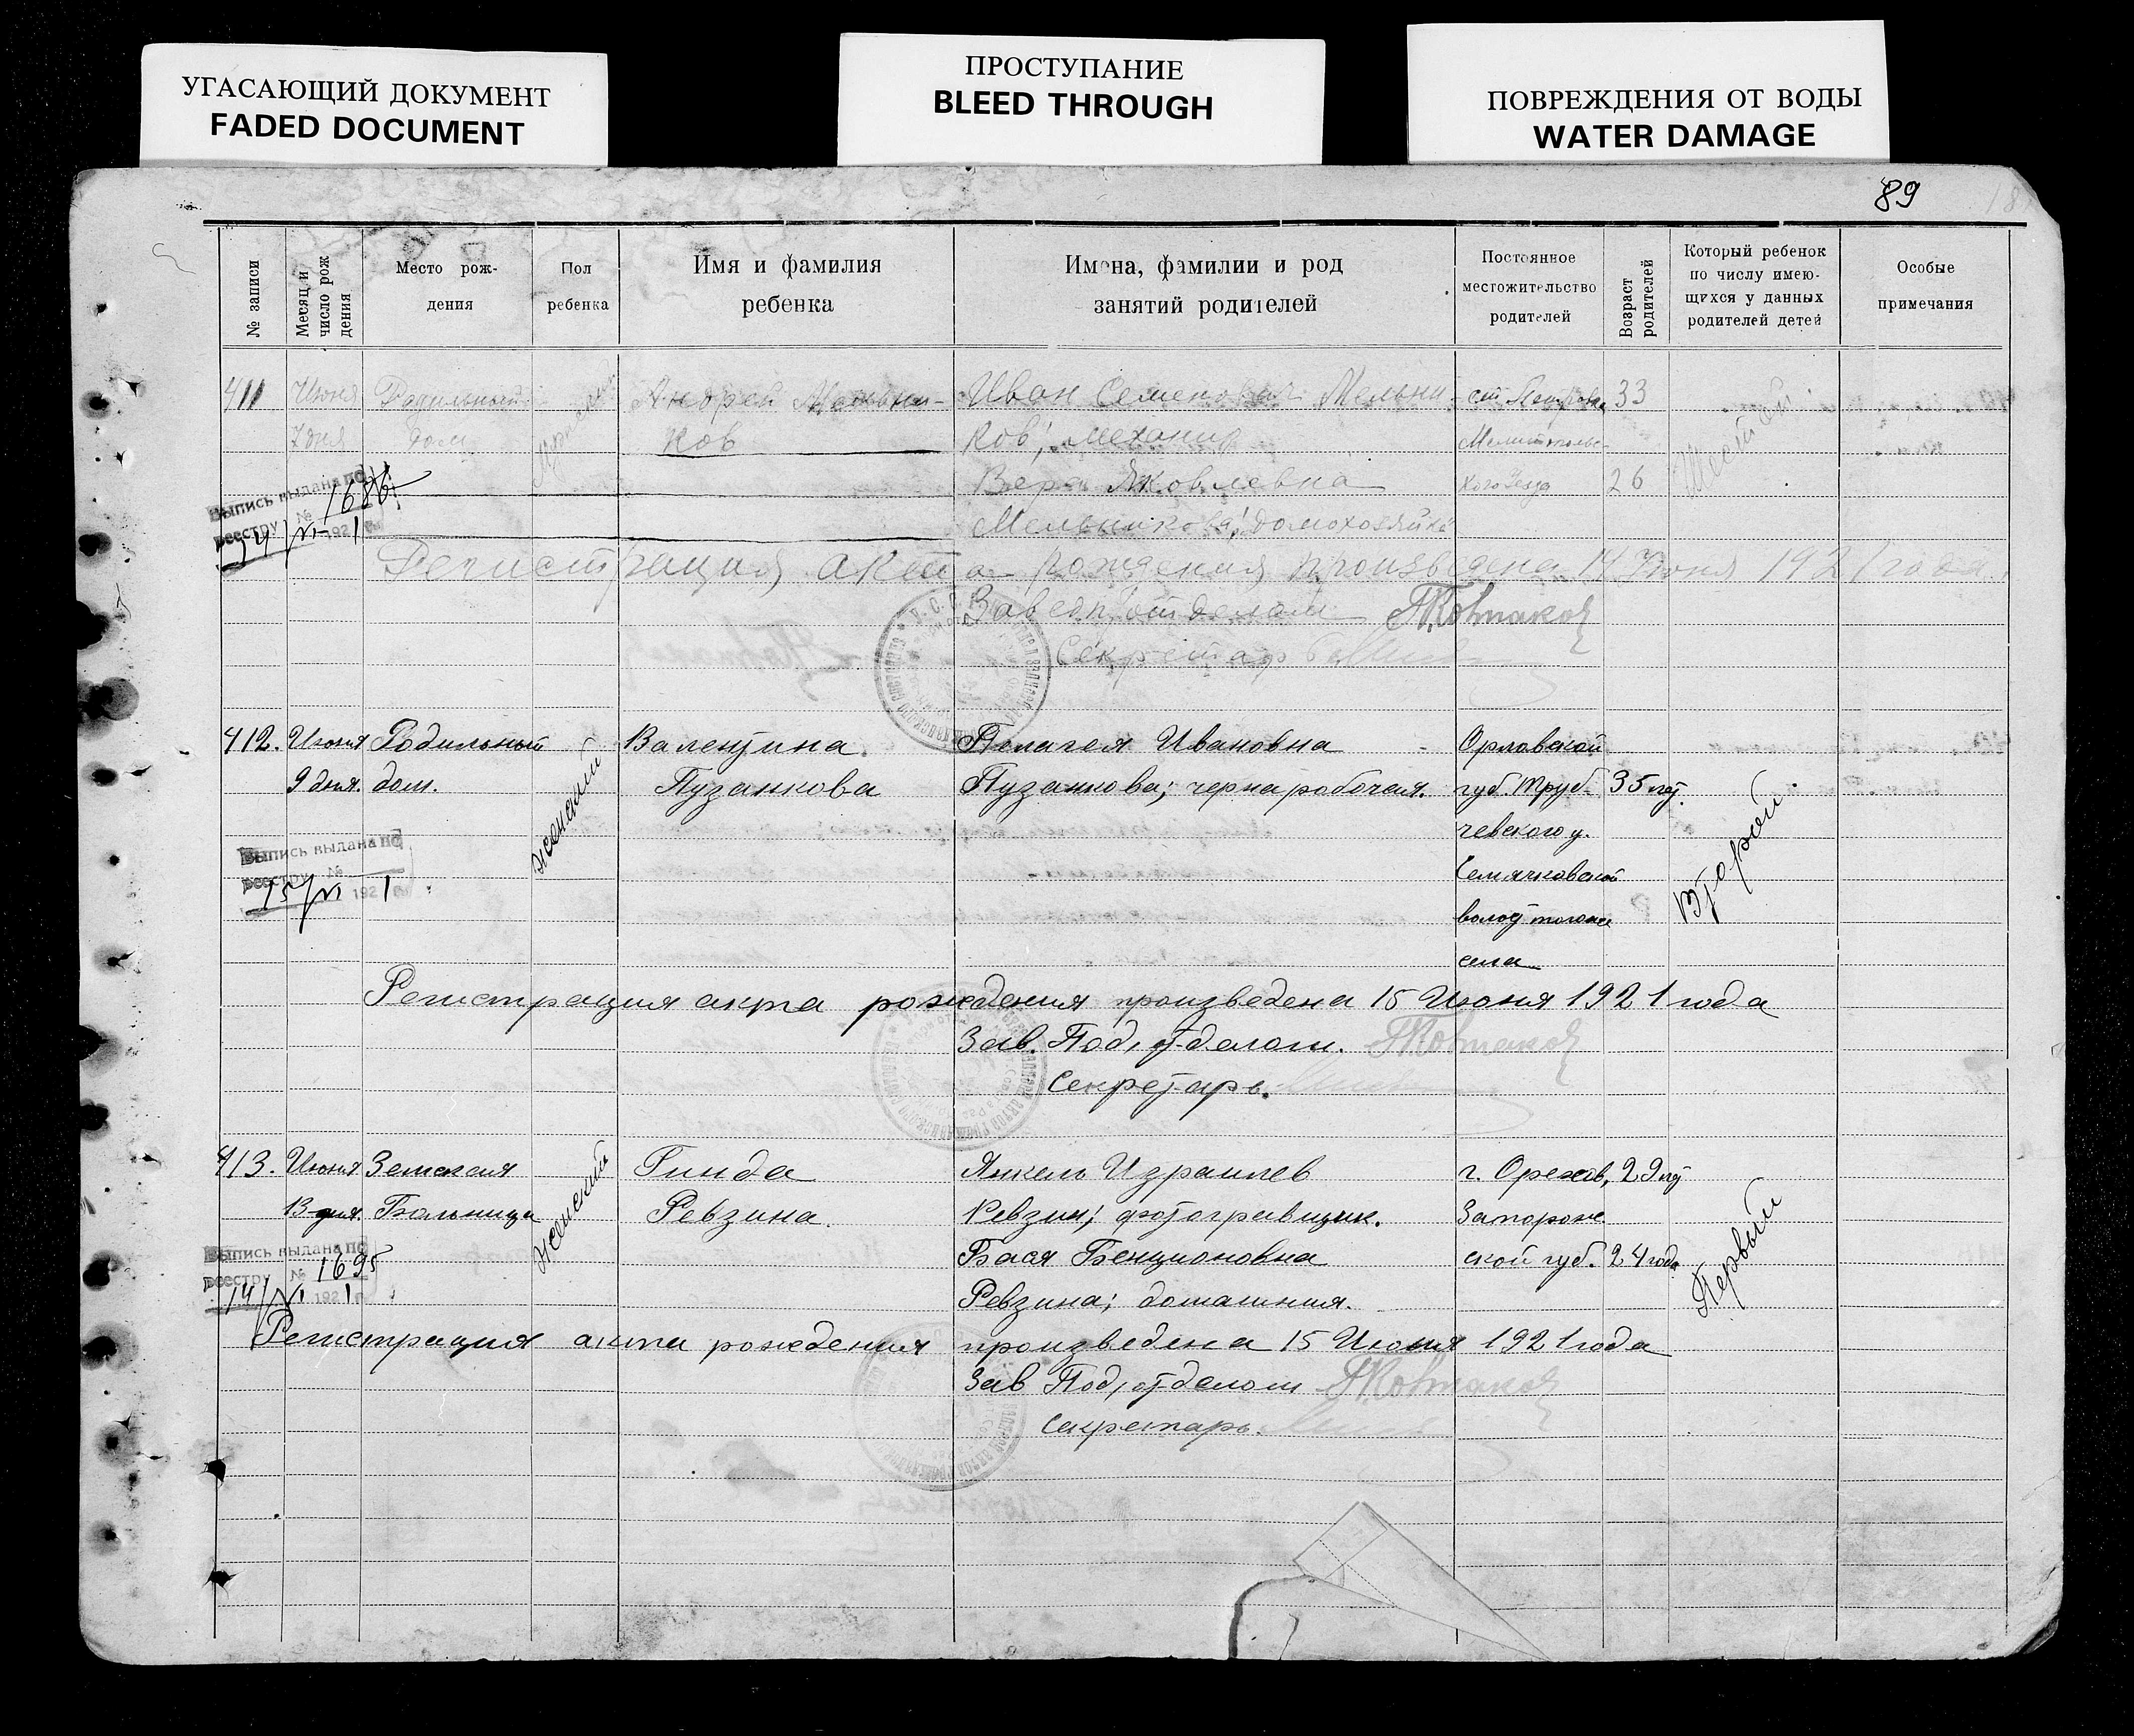 УГАСАЮЩИЙ ДОКУМЕНТ
FADED DOCUMENT
ПРОСТУПАНИЕ
BLEED THROUGH
ПОВРЕЖДЕНИЯ ОТ ВОДЫ
WATER DAMAGE
89
№ записи
Месяц и число рож дения
Место рож-
дения
Пол
ребенка
Имя и фамилия
ребенка
Имена, фамилии и род
занятий родителей
Постоянное
местожительство
родителей
Возраст родителей
Который ребенок
по числу имею-
щихся у данных
родителей детей
Особые
примечания
411 Июня Родильный Андрей Мельни- Иван Семенович Мельни- 33
7 дня дом ков ков; механик Мелитополь-
Вера Яковлевна кого уезда 26
Мельникова; домохозяйка
Шестой
Выпись выдана по
реестру № 1686
14/VI 1921 г.
Регистрация акта рождения произведена 14 Июня 1921 года
Завед. отделом
Секретарь
412. Июня Родильный женский Валентина Пелагея Ивановна Орловской
9 дня. дом. Пузанкова Пузанкова; чернарабочая. губ. Труб- 35 лет.
чевского у.
Второй
волост того же
села
Выпись выдана по
реестру №
15/VI 1921 г.
Регистрация акта рождения произведена 15 Июня 1921 года
Зав. Под, отделом.
Секретарь.
413. Июня Земская женский Гинда Янкель Израилев г. Орехов, 29 лет
13 дня. Больница Ревзина. Ревзин; фотогравщик. Запорож
Бася Бенционовна ской губ. 24 года
Ревзина; домашняя.
Первый
Выпись выдана по
реестру № 1695
14/VI 1921 г.
Регистрация акта рождения произведена 15 Июня 1921 года
Зав Под, отделом
Секретарь.